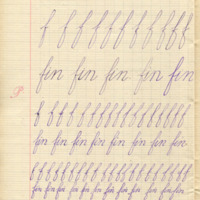 f f f f f f f f f f
fin fin fin fin fin
f f f f f f f f f f f f f f f f
fin fin fin fin fin fin fin fin
f f f f f f f f f f f f f f f f f f f f
fin fin fin fin fin fin fin fin fin fin fin